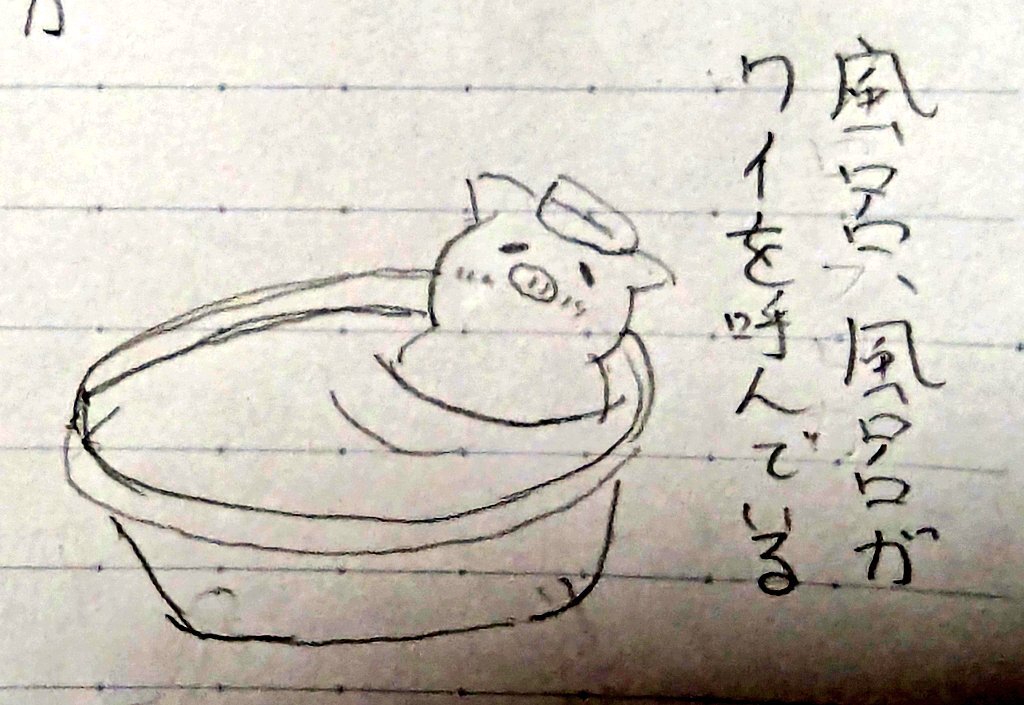 風呂、風呂が
ワイを呼んでいる